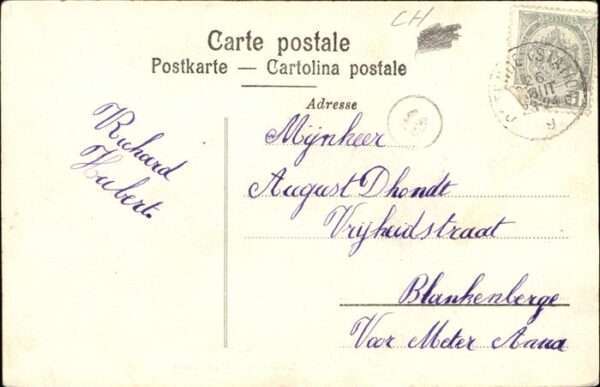 CH
Carte postale
Postkarte — Cartolina postale
Adresse
Richard
Hubert
Mijnheer
August Dhondt
Vrijheidstraat
Blankenberge
Voor Meter Anna